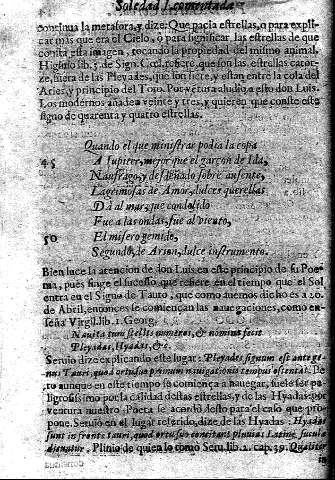 Soledad I. comentada
continua la metafora, y dize: Que pacia estrellas, o para expli-
car mas que era el Cielo, o para significar las estrellas de que
consta esta imagen, tocando la propiedad del mismo animal.
Higinio lib. 3. de Sign. Cœl. refiere, que son las estrellas cator-
ze, fuera de las Pleyades, que son siete, y estan entre la cola del
Aries, y principio del Toro. Por ventura aludio a esto don Luis.
Los modernos añaden veinte y tres, y quieren que conste este
signo de quarenta y quatro estrellas.
Quando el que ministrar podia la copa
45 A Iupiter, mejor que el garçon de Ida,
Naufrago, y desdeñado sobre ausente,
Lagrimosas de Amor, dulces querellas
Dà al mar, que condolido
Fue a las ondas, fue al viento,
50 El misero gemido,
Segundo, de Arion, dulce instrumento.
Bien luce la atencion de don Luis en este principio de su Poe-
ma, pues finge el sucesso que refiere en el tiempo que el Sol
entra en el Signo de Tauro, que como auemos dicho es a 20.
de Abril, entonces se comiençan las nauegaciones, como en-
seña Virgil. lib. 1. Georg.
Nauita tum stellis numeros, & nomina fecit
Pleyadas, Hyadas, &c.
Seruio dize explicando este lugar: Pleyades, signum est ante ge-
nua Tauri, quod ortu suo primum nauigationis tempus ostentat. Pe-
ro aunque en este tiempo se comiença a nauegar, suele ser pe-
ligrosissimo por la calidad destas estrellas, y de las Hyadas: por
ventura nuestro Poeta se acordò desto para el caso que pro-
pone. Seruio en el lugar referido, dize de las Hyadas: Hyadas
sunt in fronte tauri, quod ortu suo concitant pluuias Latine sucula
dicuntur. Plinio de quien lo tomò Seru. lib. 2. cap. 39. Qualiter
in